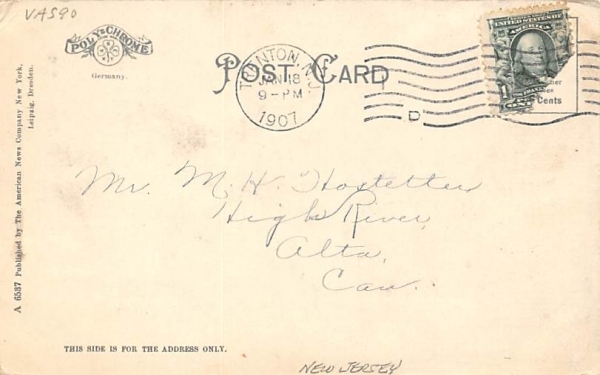 VAS90
POLY-CHROME
Germany.
POST CARD
TRENTON, N.J.
JAN 18
9-PM
1907
D
UNITED STATES OF
AMERICA
Cents
Mr. M. H. Hostetler
High River,
Alta,
Can.
A 6537 Published by The American News Company New York,
Leipzig, Dresden.
THIS SIDE IS FOR THE ADDRESS ONLY.
NEW JERSEY